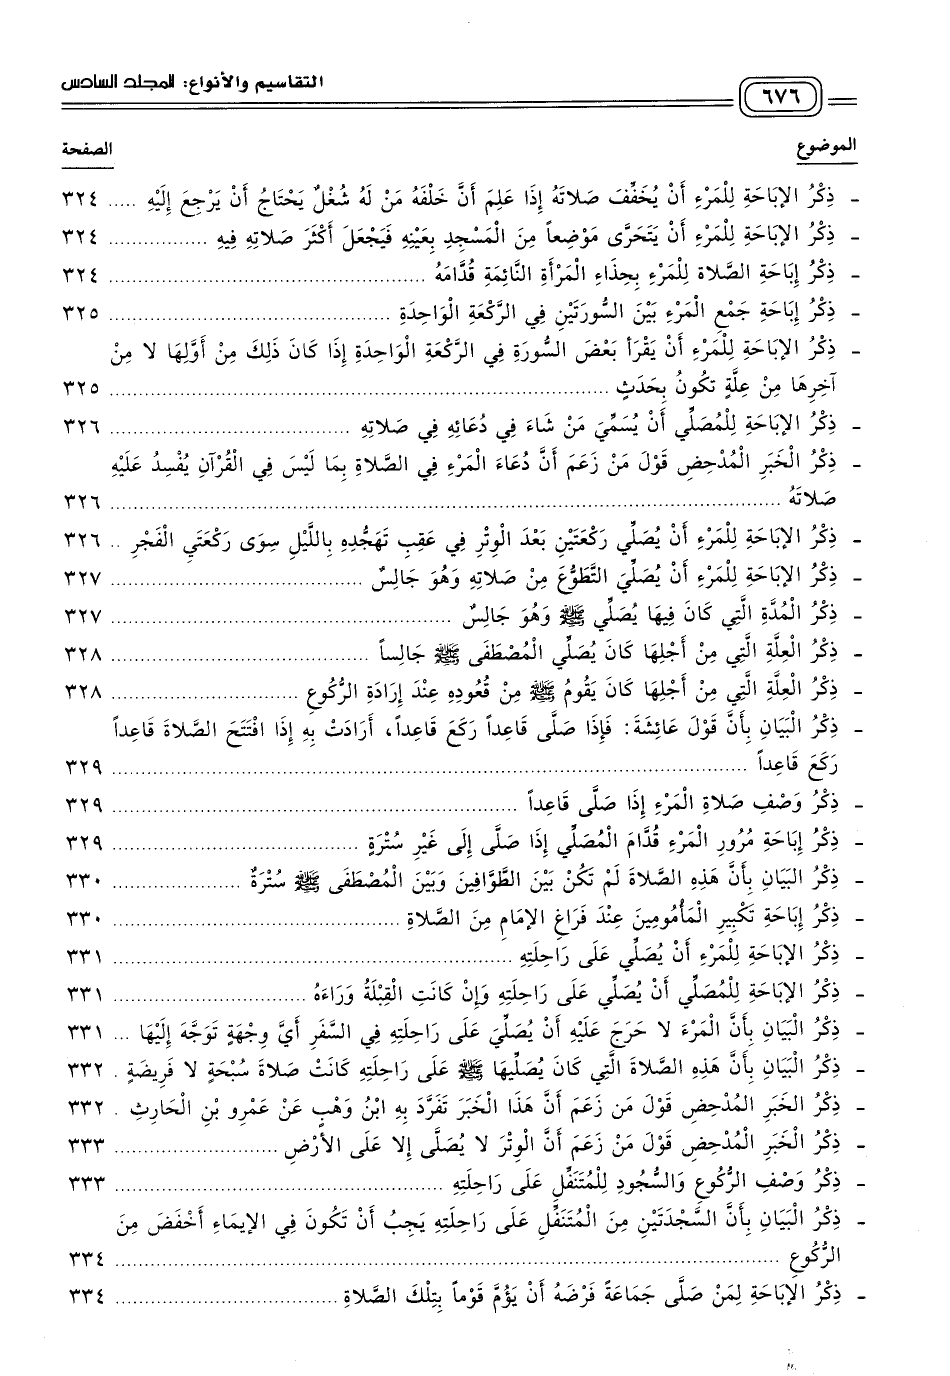 التقاسيم والأنواع: المجلد السادس
٦٧٦
الموضوع الصفحة
- ذِكْرُ الإبَاحَةِ لِلْمَرْءِ أَنْ يُخَفِّفَ صَلاتَهُ إِذَا عَلِمَ أَنَّ خَلْفَهُ مَنْ لَهُ شُغْلٌ يَحْتَاجُ أَنْ يَرْجِعَ إِلَيْهِ ..... ٣٢٤
- ذِكْرُ الإبَاحَةِ لِلْمَرْءِ أَنْ يَتَحَرَّى مَوْضِعاً مِنَ الْمَسْجِدِ بِعَيْنِهِ فَيَجْعَلَ أَكْثَرَ صَلاتِهِ فِيهِ ................. ٣٢٤
- ذِكْرُ إِبَاحَةِ الصَّلاةِ لِلْمَرْءِ بِحِذَاءِ الْمَرْأَةِ النَّائِمَةِ قُدَّامَهُ ................. ٣٢٤
- ذِكْرُ إِبَاحَةِ جَمْعِ الْمَرْءِ بَيْنَ السُّورَتَيْنِ فِي الرَّكْعَةِ الْوَاحِدَةِ ................. ٣٢٥
- ذِكْرُ الإبَاحَةِ لِلْمَرْءِ أَنْ يَقْرَأَ بَعْضَ السُّورَةِ فِي الرَّكْعَةِ الْوَاحِدَةِ إِذَا كَانَ ذَلِكَ مِنْ أَوَّلِهَا لا مِنْ
آخِرِهَا مِنْ عِلَّةٍ تَكُونُ بِحَدَثٍ ................. ٣٢٥
- ذِكْرُ الإبَاحَةِ لِلْمُصَلِّي أَنْ يُسَمِّيَ مَنْ شَاءَ فِي دُعَائِهِ فِي صَلاتِهِ ................. ٣٢٦
- ذِكْرُ الْخَبَرِ الْمُدْحِضِ قَوْلَ مَنْ زَعَمَ أَنَّ دُعَاءَ الْمَرْءِ فِي الصَّلاةِ بِمَا لَيْسَ فِي الْقُرْآنِ يُفْسِدُ عَلَيْهِ
صَلاتَهُ ................. ٣٢٦
- ذِكْرُ الإبَاحَةِ لِلْمَرْءِ أَنْ يُصَلِّيَ رَكْعَتَيْنِ بَعْدَ الْوِتْرِ فِي عَقِبِ تَهَجُّدِهِ بِاللَّيْلِ سِوَى رَكْعَتَيِ الْفَجْرِ .. ٣٢٦
- ذِكْرُ الإبَاحَةِ لِلْمَرْءِ أَنْ يُصَلِّيَ التَّطَوُّعَ مِنْ صَلاتِهِ وَهُوَ جَالِسٌ ................. ٣٢٧
- ذِكْرُ الْمُدَّةِ الَّتِي كَانَ فِيهَا يُصَلِّي ﷺ وَهُوَ جَالِسٌ ................. ٣٢٧
- ذِكْرُ الْعِلَّةِ الَّتِي مِنْ أَجْلِهَا كَانَ يُصَلِّي الْمُصْطَفَى ﷺ جَالِساً ................. ٣٢٨
- ذِكْرُ الْعِلَّةِ الَّتِي مِنْ أَجْلِهَا كَانَ يَقُومُ ﷺ مِنْ قُعُودِهِ عِنْدَ إِرَادَةِ الرُّكُوعِ ................. ٣٢٨
- ذِكْرُ الْبَيَانِ بِأَنَّ قَوْلَ عَائِشَةَ: فَإِذَا صَلَّى قَاعِداً رَكَعَ قَاعِداً، أَرَادَتْ بِهِ إِذَا افْتَتَحَ الصَّلاةَ قَاعِداً
رَكَعَ قَاعِداً ................. ٣٢٩
- ذِكْرُ وَصْفِ صَلاةِ الْمَرْءِ إِذَا صَلَّى قَاعِداً ................. ٣٢٩
- ذِكْرُ إِبَاحَةِ مُرُورِ الْمَرْءِ قُدَّامَ الْمُصَلِّي إِذَا صَلَّى إِلَى غَيْرِ سُتْرَةٍ ................. ٣٢٩
- ذِكْرُ البَيَانِ بِأَنَّ هَذِهِ الصَّلاةَ لَمْ تَكُنْ بَيْنَ الطَّوَّافِينَ وَبَيْنَ الْمُصْطَفَى ﷺ سُتْرَةٌ ................. ٣٣٠
- ذِكْرُ إِبَاحَةِ تَكْبِيرِ الْمَأْمُومِينَ عِنْدَ فَرَاغِ الإمَامِ مِنَ الصَّلاةِ ................. ٣٣٠
- ذِكْرُ الإبَاحَةِ لِلْمَرْءِ أَنْ يُصَلِّيَ عَلَى رَاحِلَتِهِ ................. ٣٣١
- ذِكْرُ الإبَاحَةِ لِلْمُصَلِّي أَنْ يُصَلِّيَ عَلَى رَاحِلَتِهِ وَإِنْ كَانَتِ الْقِبْلَةُ وَرَاءَهُ ................. ٣٣١
- ذِكْرُ الْبَيَانِ بِأَنَّ الْمَرْءَ لا حَرَجَ عَلَيْهِ أَنْ يُصَلِّيَ عَلَى رَاحِلَتِهِ فِي السَّفَرِ أَيَّ وِجْهَةٍ تَوَجَّهَ إِلَيْهَا ... ٣٣١
- ذِكْرُ الْبَيَانِ بِأَنَّ هَذِهِ الصَّلاةَ الَّتِي كَانَ يُصَلِّيهَا ﷺ عَلَى رَاحِلَتِهِ كَانَتْ صَلاةَ سُبْحَةٍ لا فَرِيضَةٍ . ٣٣٢
- ذِكْرُ الخَبَرِ المُدْحِضِ قَوْلَ مَن زَعَمَ أَنَّ هَذَا الْخَبَرَ تَفَرَّدَ بِهِ ابْنُ وَهْبٍ عَنْ عَمْرِو بْنِ الْحَارِثِ . ٣٣٢
- ذِكْرُ الْخَبَرِ الْمُدْحِضِ قَوْلَ مَنْ زَعَمَ أَنَّ الْوِتْرَ لا يُصَلَّى إِلا عَلَى الأَرْضِ ................. ٣٣٣
- ذِكْرُ وَصْفِ الرُّكُوعِ وَالسُّجُودِ لِلْمُتَنَفِّلِ عَلَى رَاحِلَتِهِ ................. ٣٣٣
- ذِكْرُ الْبَيَانِ بِأَنَّ السَّجْدَتَيْنِ مِنَ الْمُتَنَفِّلِ عَلَى رَاحِلَتِهِ يَجِبُ أَنْ تَكُونَ فِي الإيمَاءِ أَخْفَضَ مِنَ
الرُّكُوعِ ................. ٣٣٤
- ذِكْرُ الإبَاحَةِ لِمَنْ صَلَّى جَمَاعَةً فَرْضَهُ أَنْ يَؤُمَّ قَوْماً بِتِلْكَ الصَّلاةِ ................. ٣٣٤